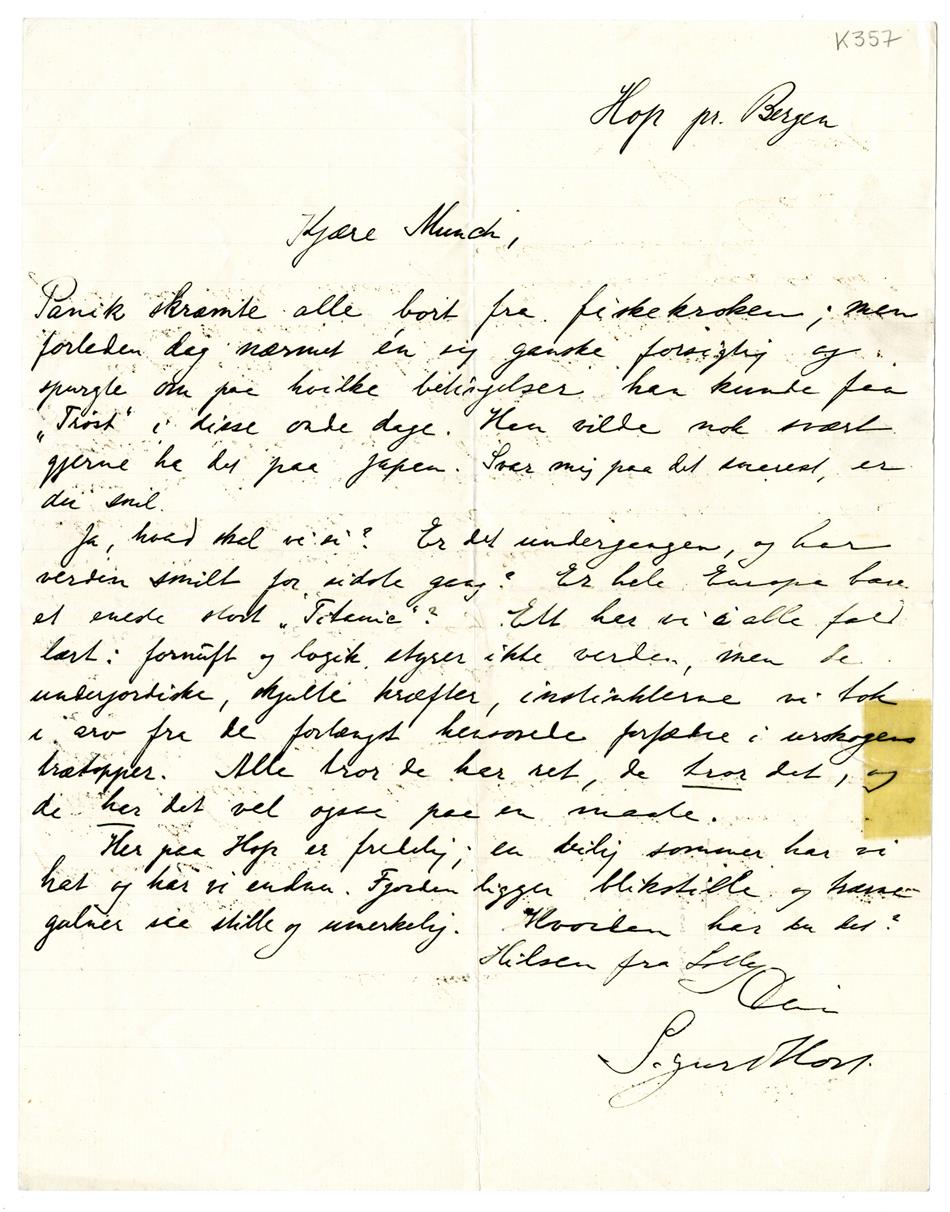 K357
Hop pr. Bergen
Kjære Munch,
Panik skræmte alle bort fra fiskekroken; men
forleden dag nærmet én sig ganske forsigtig og
spurgte om paa hvilke betingelser han kunde faa
„Trøst“ i disse onde dage. Han vilde nok svært
gjerne ha det paa Japan. Svar mig paa det snarest, er
du snil.
Ja, hvad skal vi si? Er det undergangen, og har
verden smilt for sidste gang? Er hele Europa bare
et eneste stort „Titanic“? Ett har vi i alle fald
lært: fornuft og logik styrer ikke verden, men de
underjordiske, skjulte kræfter, instinkterne vi tok
i arv fra de forlængst hensovede forfædre i urskogens
trætopper. Alle tror de har ret, de tror det, og
de har det vel ogsaa paa en maate.
Her paa Hop er fredelig; en deilig sommer har vi
hat og har vi endnu. Fjorden ligger blikstille og
gulner saa stille og umerkelig. Hvordan har du det?
Hilsen fra
Din
Sigurd Høst.